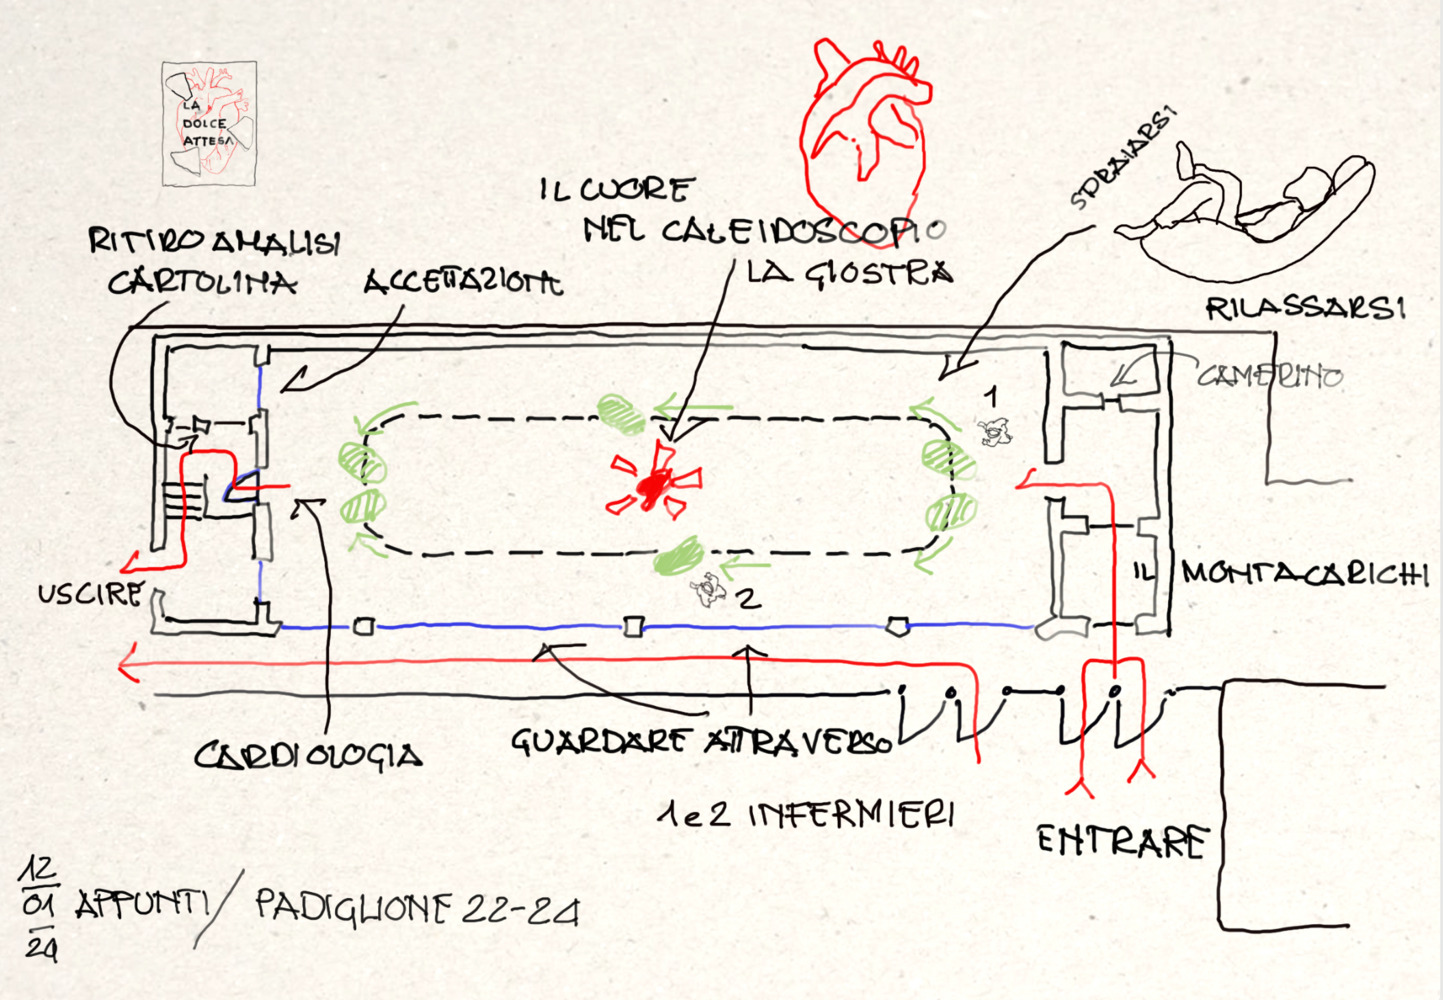 LA
DOLCE
ATTESA
IL CUORE
NEL CALEIDOSCOPIO
LA GIOSTRA
SDRAIARSI
RILASSARSI
RITIRO ANALISI
CARTOLINA
ACCETTAZIONE
CAMERINO
1
2
USCIRE
IL MONTACARICHI
CARDIOLOGIA
GUARDARE ATTRAVERSO
1 e 2 INFERMIERI
ENTRARE
12
01
24
APPUNTI / PADIGLIONE 22-24